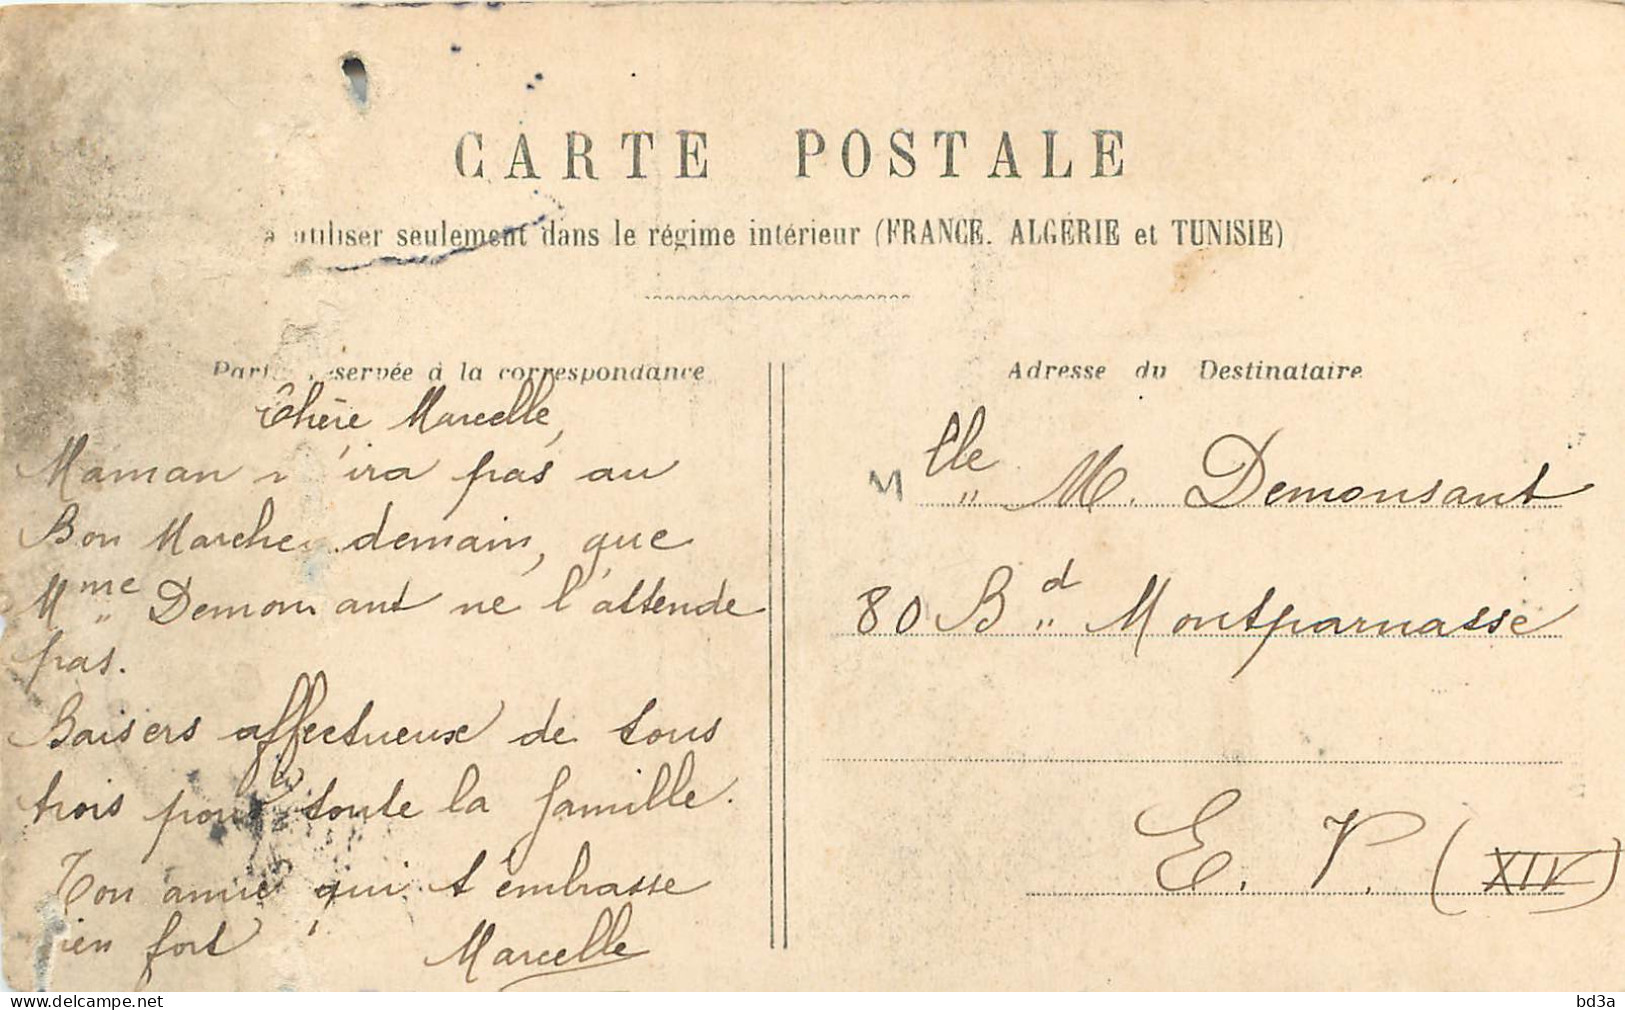 CARTE POSTALE
à utiliser seulement dans le régime intérieur (FRANCE. ALGÉRIE et TUNISIE)
Partie réservée à la correspondance
Chère Marcelle,
Maman n'ira pas au
Bon Marché demain, que
Mme Demonsant ne l'attende
pas.
Baisers affectueux de tous
trois pour toute la famille.
Ton amie qui t'embrasse
bien fort
Marcelle
Adresse du Destinataire
Mlle M. Demonsant
80 Bd Montparnasse
E. V. (XIV)
www.delcampe.net
bd3a